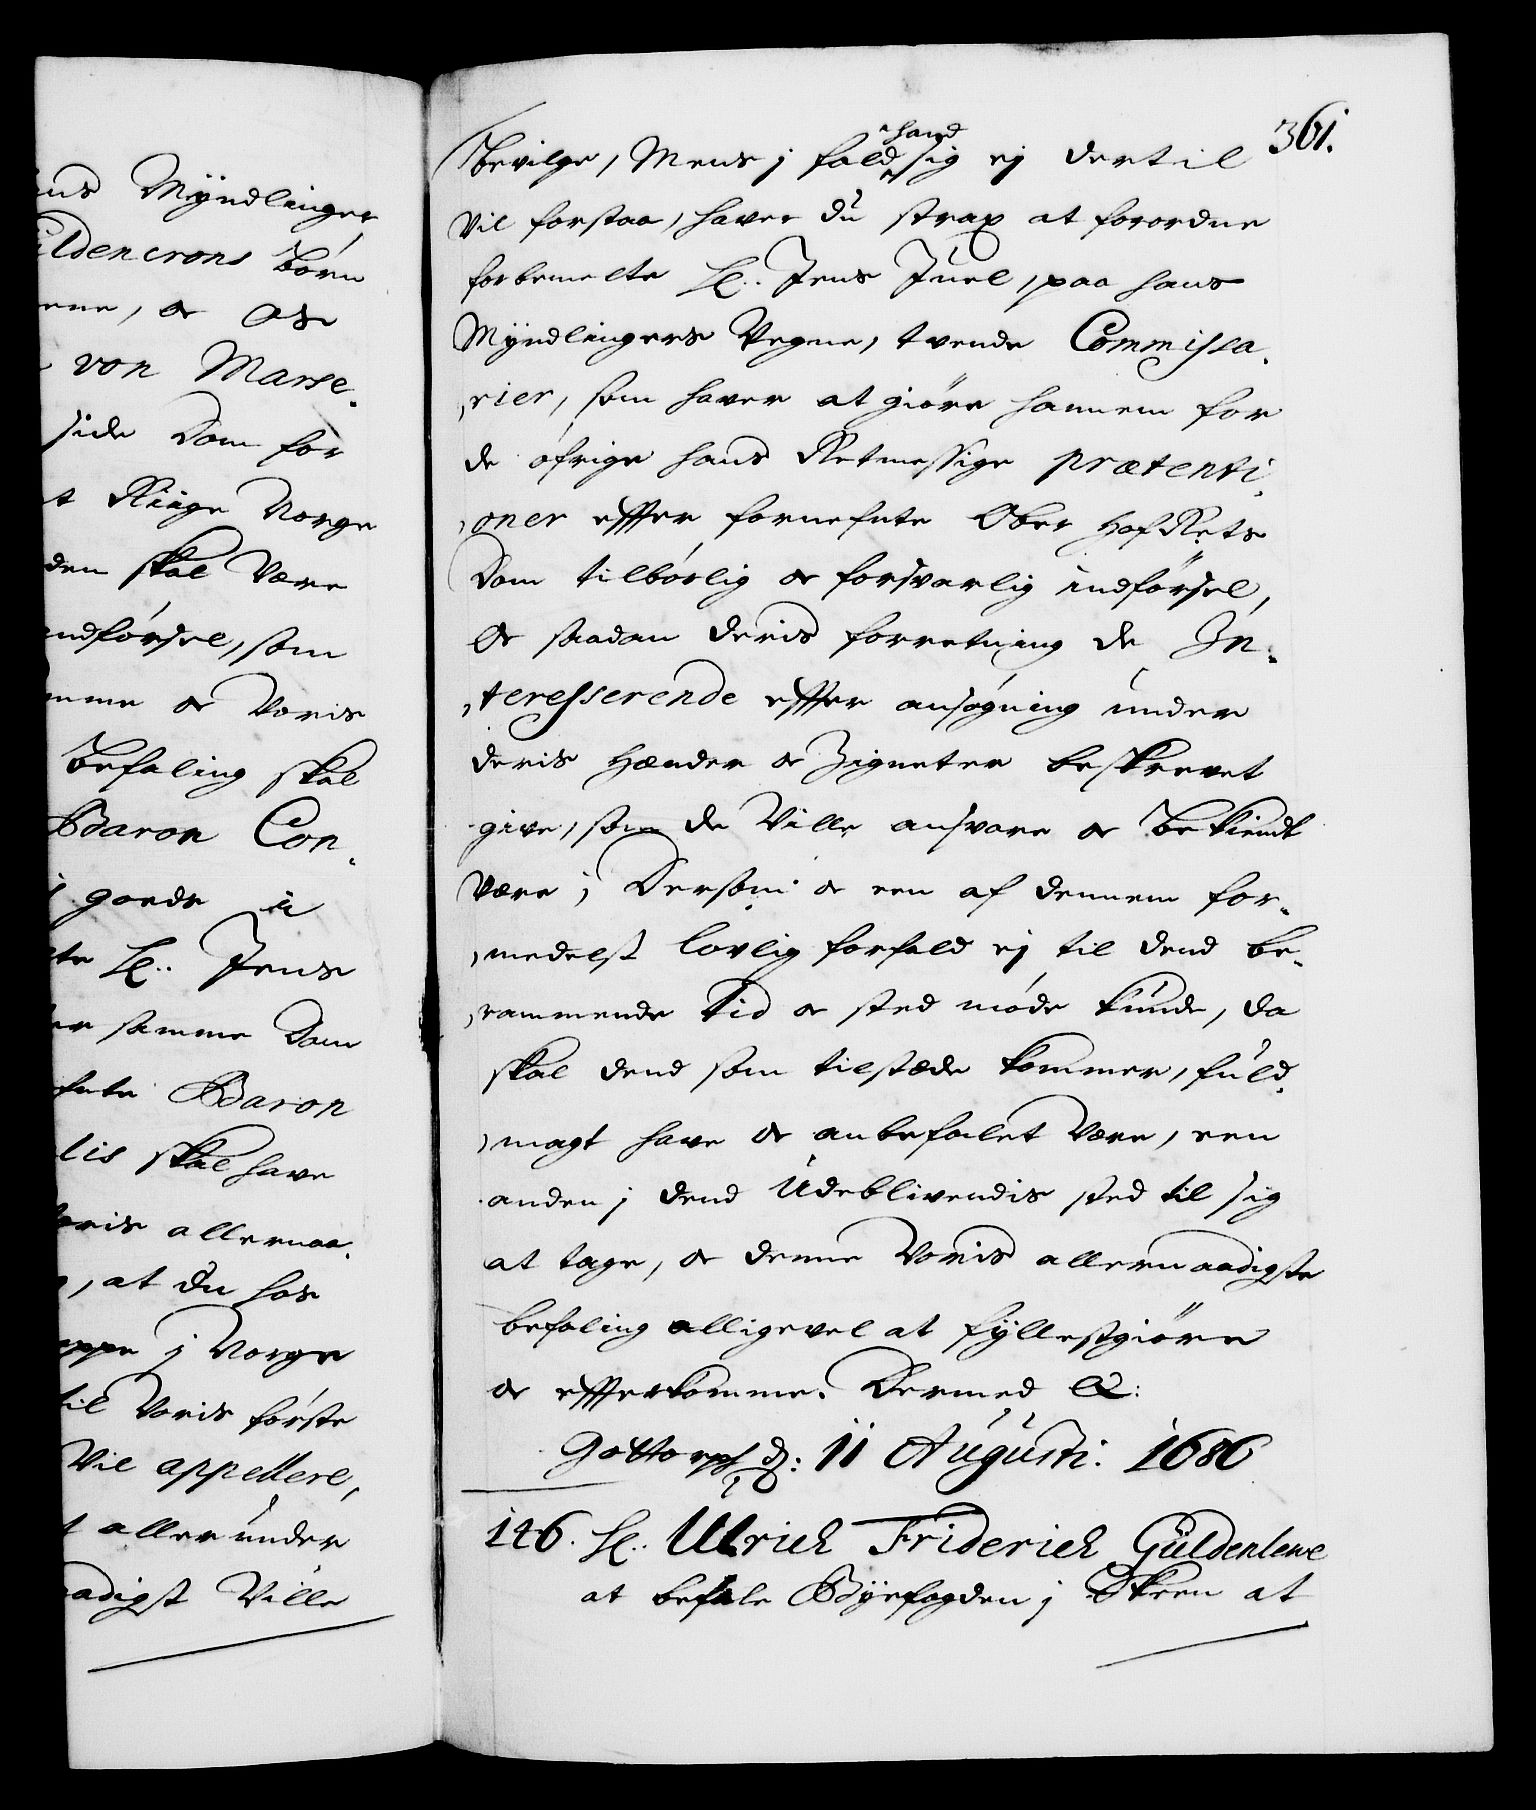 ens Myndlinger
üldencrons børn
ene, og Os
von Marse-
side Dom for
t Riige Norge
den skal være
indførsel, som
mme og Voris
befaling skal
Baron Con-
j goeds i
te Hr: Jens
er samme Dom
fnte Baron
lis skal have
Voris allernaa-
, at du hos
appe j Norge
til Voris første
vil appellere,
t allerunder
aadigst ville
361.
bevilge, Mens j fald hand sig ej dertil
vil forstaa, haver du strax at forordne
forbemelte Hr: Jens Juel, paa hans
Myndlingers Vegne, tvende Commissa-
rier, som haver at giøre hannem for
de øfrige hans Retmessige prætenti-
oner effter fornefnte Ober Hof Rets
Dom tilbørlig og forsvarlig indførsel,
Og saadan deris forretning de In-
teresserende effter ansøgning under
deris Hænder og Zigneter beskrevet
give, som de ville ansvare og bekiendt
være; Dersom og een af dennem for-
medelst lovlig forfald ej til dend be-
rammende tid og sted møde kunde, da
skal dend som tilstæde kommer, fuld-
magt have og anbefalet være, een
anden j dend Udeblivendis sted til sig
at tage, og denne Voris allernaadigste
befaling alligevel at fyllestgiøre
og effterkomme. Dermed &:
Gottorph d: 11 Augusti. 1686
146. Hr: Ulrich Friderich Güldenlewe
at befale Byefogden j Skeen at